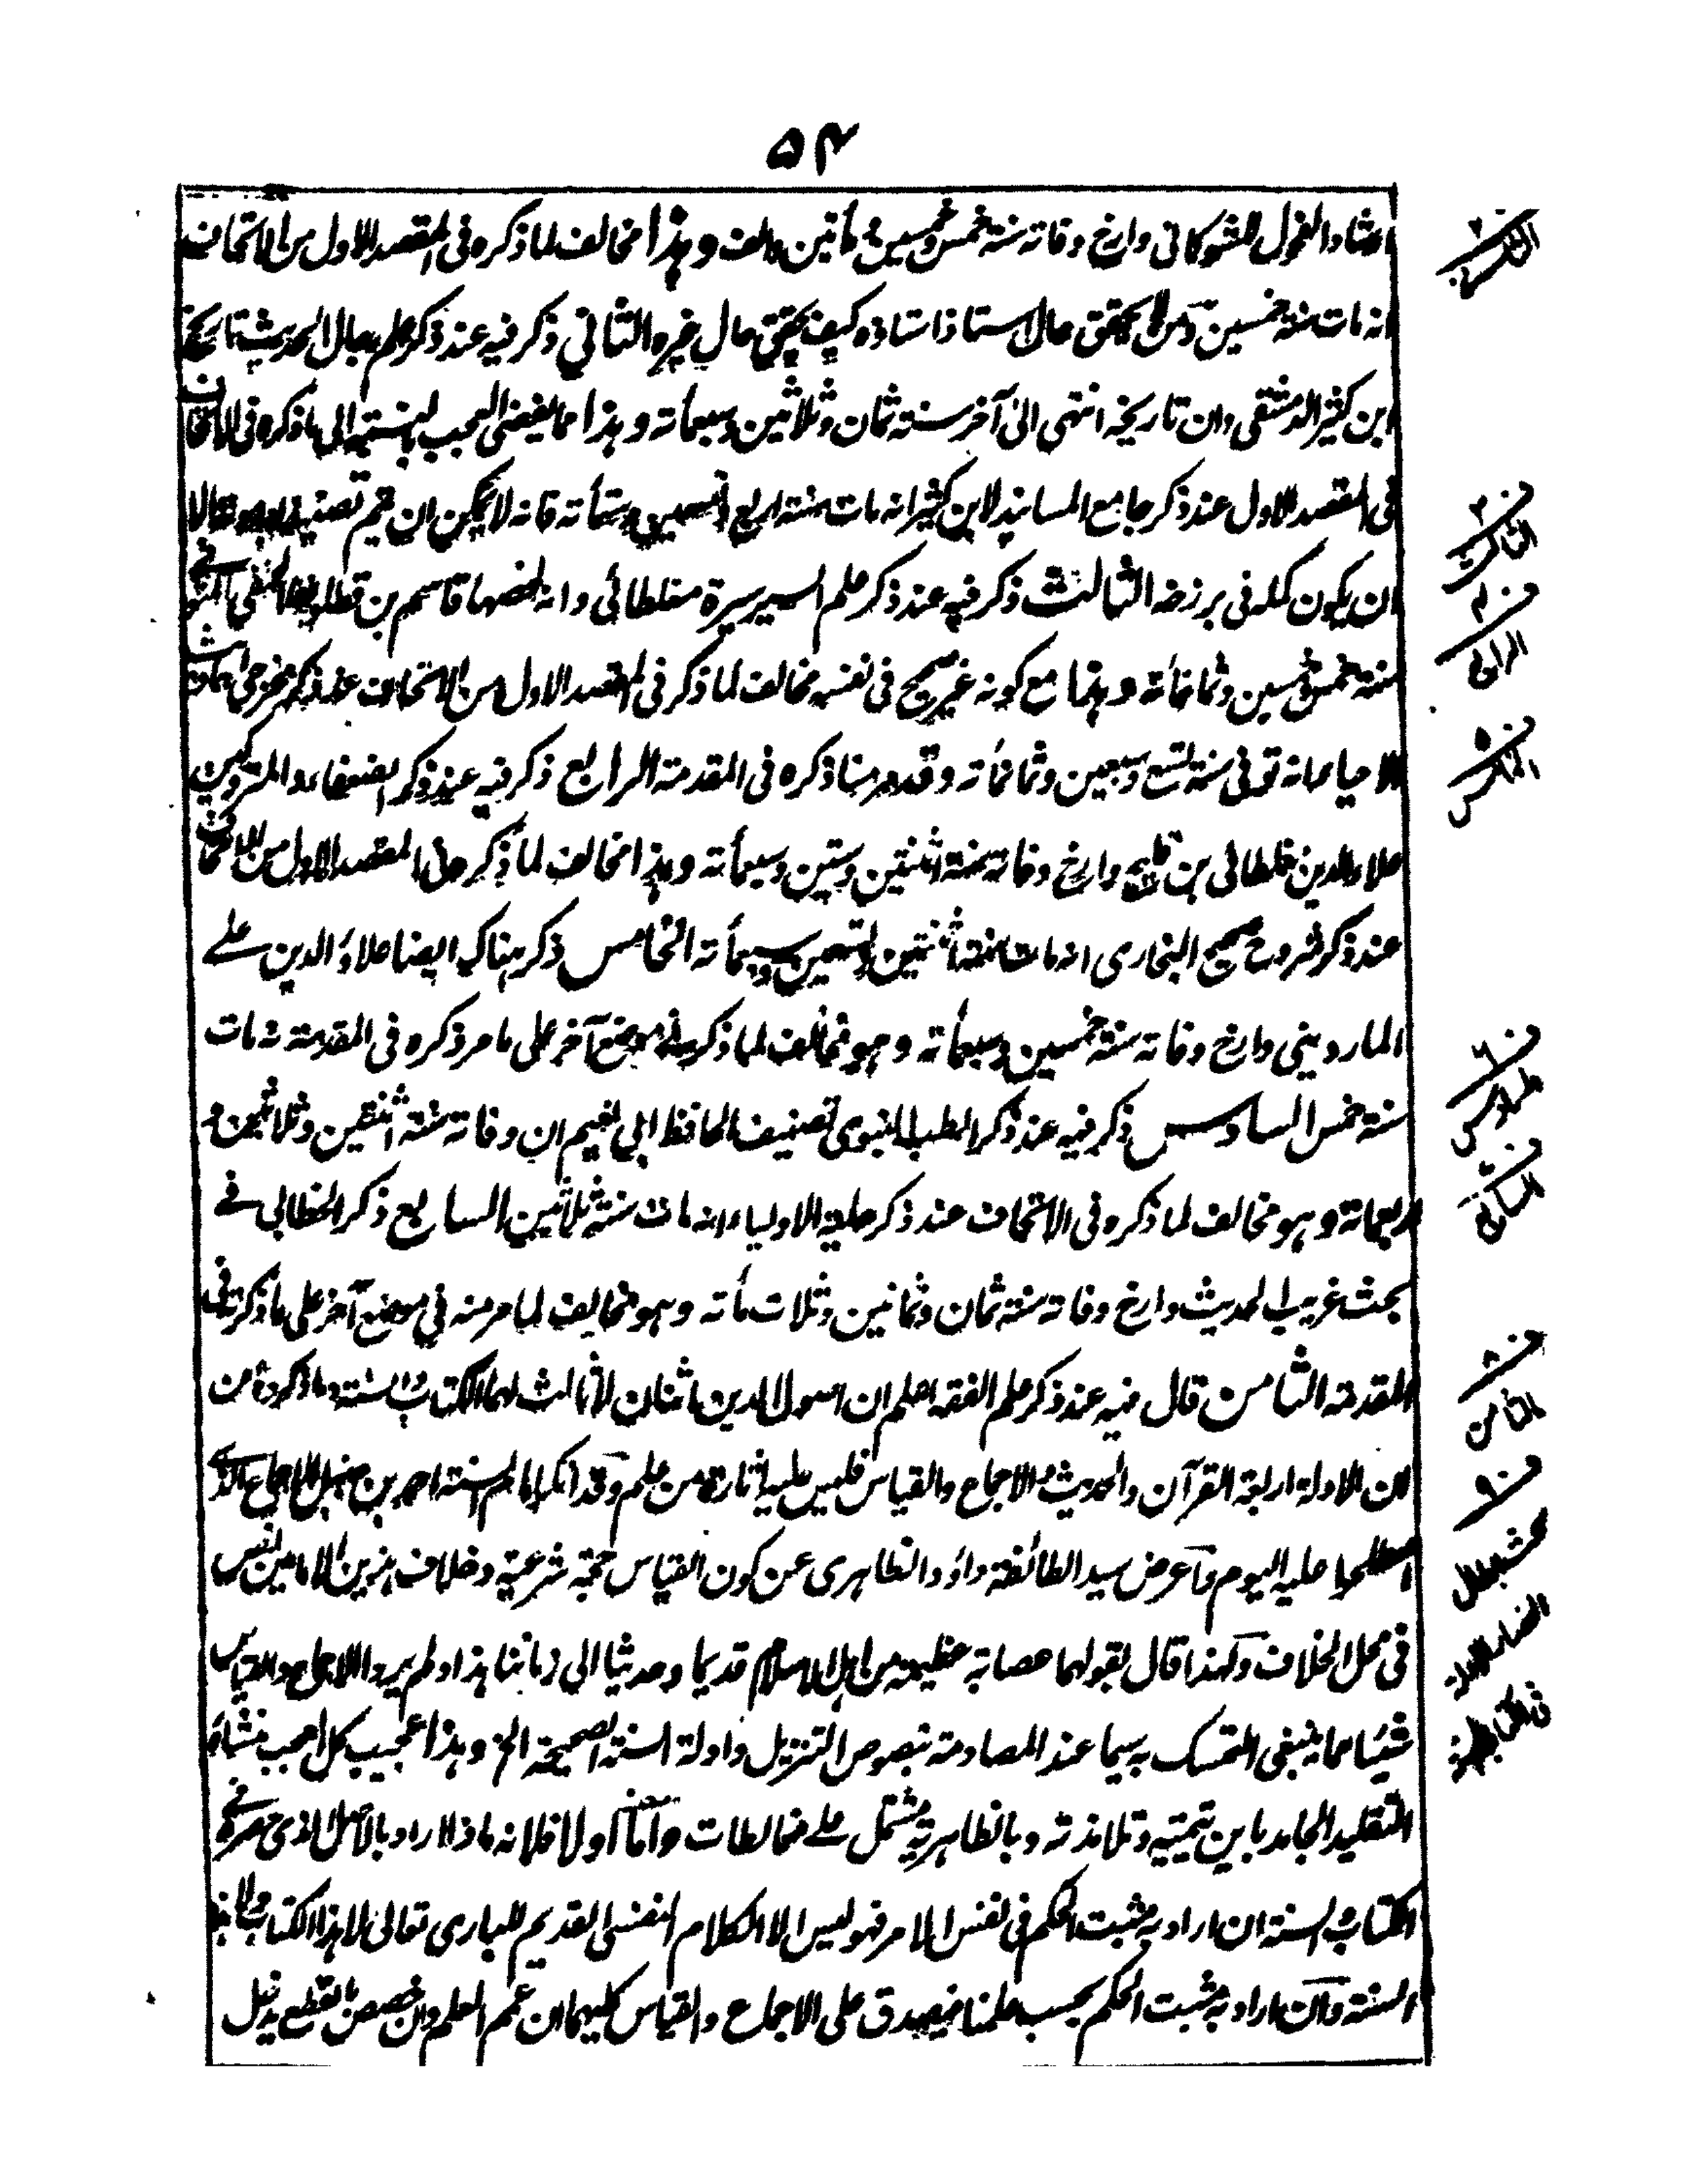 ۵۴
ارشاد الفحول للشوكانى وارخ وفاته سنة خمس وخمسين ومأتين والف وهذا مخالف لما ذكره فى المقصد الاول من الاتحاف
انه مات سنة خمسين ومن لم يحقق حال استاذ استاذه كيف يحقق حال غيره الثانى ذكر فيه عند ذكر علم رجال الحديث تاريخ
ابن كثير الدمشقى وان تاريخه انتهى الى آخر سنة ثمان وثلاثين وسبعمأته وهذا مما يفضى العجب بالنسبة الى ما ذكره فى الاتحاف
فى المقصد الاول عند ذكر جامع المسانيد لابن كثير انه مات سنة اربع وستمأته فانه لا يمكن ان يتم تصنيفه الا
ان يكون كمله فى برزخه الثالث ذكر فيه عند ذكر علم السير سيرة مغلطائى وانه لخصها قاسم بن قطلوبغا الحنفى المتوفى
سنة خمس وخمسين وثمانمأته وهذا مع كونه غير صحيح فى نفسه مخالف لما ذكر فى المقصد الاول من الاتحاف عند ذكر مخرجى احاديث
الاحياء انه توفى سنة تسع وسبعين وثمانمأته وقد مر منا ذكره فى المقدمة الرابع ذكر فيه عند ذكر الضعفاء والمتروكين
علاء الدين مغلطائى بن قليج وارخ وفاته سنة اثنتين وستين وسبعمأته وهذا مخالف لما ذكره فى المقصد الاول من الاتحاف
عند ذكر شروح صحيح البخارى انه مات سنة اثنتين وتسعين وسبعمأته الخامس ذكر هناك ايضا علاؤ الدين على
الماردينى وارخ وفاته سنة خمسين وسبعمأته وهو مخالف لما ذكره فى موضع آخر على ما مر ذكره فى المقدمة انه مات
سنة خمس السادس ذكر فيه عند ذكر الطب النبوى تصنيف الحافظ ابى نعيم ان وفاته سنة اثنتين وثلاثين و
اربعمائة وهو مخالف لما ذكره فى الاتحاف عند ذكر حلية الاولياء انه مات سنة ثلاثين السابع ذكر الخطابى فى
بحث غريب الحديث وارخ وفاته سنة ثمان وثمانين وثلاث مأته وهو مخالف لما مر منه فى موضع آخر على ما ذكرته فى
المقدمة الثامن قال فيه عند ذكر علم الفقه اعلم ان اصول الدين اثنان لا ثالث لهما الكتاب والسنة وما ذكروه من
ان الادلة اربعة القرآن والحديث والاجماع والقياس فليس عليه اثارة من علم وقد انكر امام السنة احمد بن حنبل الاجماع الذى
اصطلحوا عليه اليوم واعرض سيد الطائفة داؤد الظاهرى عن كون القياس حجة شرعية وخلاف هذين الامامين نص
فى محل الخلاف ولهذا قال بقولهما عصابة عظيمة من اهل الاسلام قديما وحديثا الى زماننا هذا ولم يروا الاجماع والقياس
شيئا مما ينبغى التمسك به سيما عند المصادمة بنصوص التنزيل وادلة السنة الصحيحة الخ وهذا عجيب كل العجب منشاؤه
التقليد الجامد بابن تيمية وتلامذته وبالظاهرية مشتمل على مغالطات واما اولا فلانه ماذا اراد بالاصل الذى حصره فى
الكتاب والسنة ان اراد به مثبت الحكم فى نفس الامر فهو ليس الا الكلام النفسى القديم للبارى تعالى لا هذا الكتاب ولا هذه
السنة وان اراد به مثبت الحكم بحسب علمنا فيصدق على الاجماع والقياس كليهما ان عمم العلم وان خصص بالقطع يدخل
ف۲
الثانى
ف۳
الثالث
ف۴
الرابع
ف۵
الخامس
ف۶
السادس
ف۷
السابع
ف۸
الثامن
ف۹